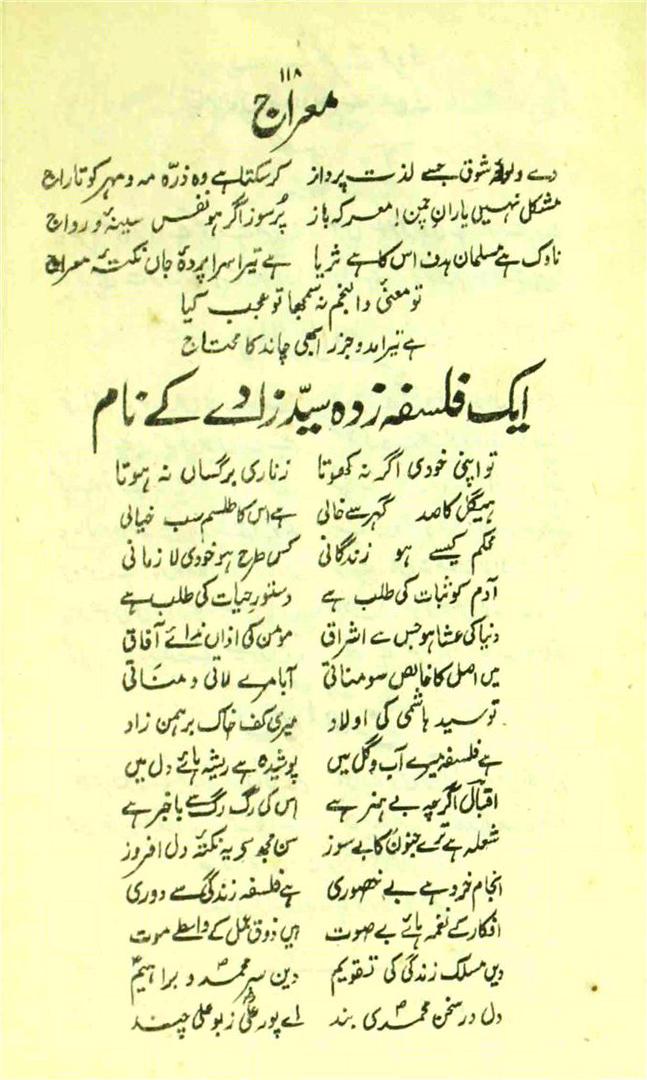 ۱۱۸
معراج
دے ولولۂ شوق جسے لذت پرواز کر سکتا ہے وہ ذرّہ مہ و مہر کو تاراج
مشکل نہیں یارانِ چمن! معرکہ باز پُر سوز اگر ہو نفس سینۂ دراج
ناوک ہے مسلمان ہدف اس کا ہے ثریا ہے تیرا سرا پردۂ جاں نکتۂ معراج
تو معنیٔ والنجم نہ سمجھا تو عجب کیا
ہے تیرا مدوجزر ابھی چاند کا محتاج
ایک فلسفہ زدہ سیّد زادے کے نام
تو اپنی خودی اگر نہ کھوتا زناری برگساں نہ ہوتا
ہیگل کا صدف گہر سے خالی ہے اس کا طلسم سب خیالی
محکم کیسے ہو زندگانی کس طرح ہو خودی لا زمانی
آدم کو ثبات کی طلب ہے دستور حیات کی طلب ہے
دنیا کی عشا ہو جس سے اشراق مومن کی اذاں ندائے آفاق
میں اصل کا خالص سومناتی آبا مرے لاتی و مناتی
تو سید ہاشمی کی اولاد میری کف خاک برہمن زاد
ہے فلسفہ میرے آب و گل میں پوشیدہ ہے ریشہ ہائے دل میں
اقبالؔ اگرچہ بے ہنر ہے اس کی رگ رگ سے باخبر ہے
شعلہ ہے ترے جنوں کا بے سوز سن مجھ سے یہ نکتۂ دل افروز
انجام خرد ہے بے حضوری ہے فلسفہ زندگی سے دوری
افکار کے نغمہ ہائے بے صوت ہیں ذوق عمل کے واسطے موت
دیں مسلک زندگی کی تقویم دین سر محمدؐ و براہیمؑ
دل در سخن محمدیؐ بند اے پور علیؓ ز بو علی چند